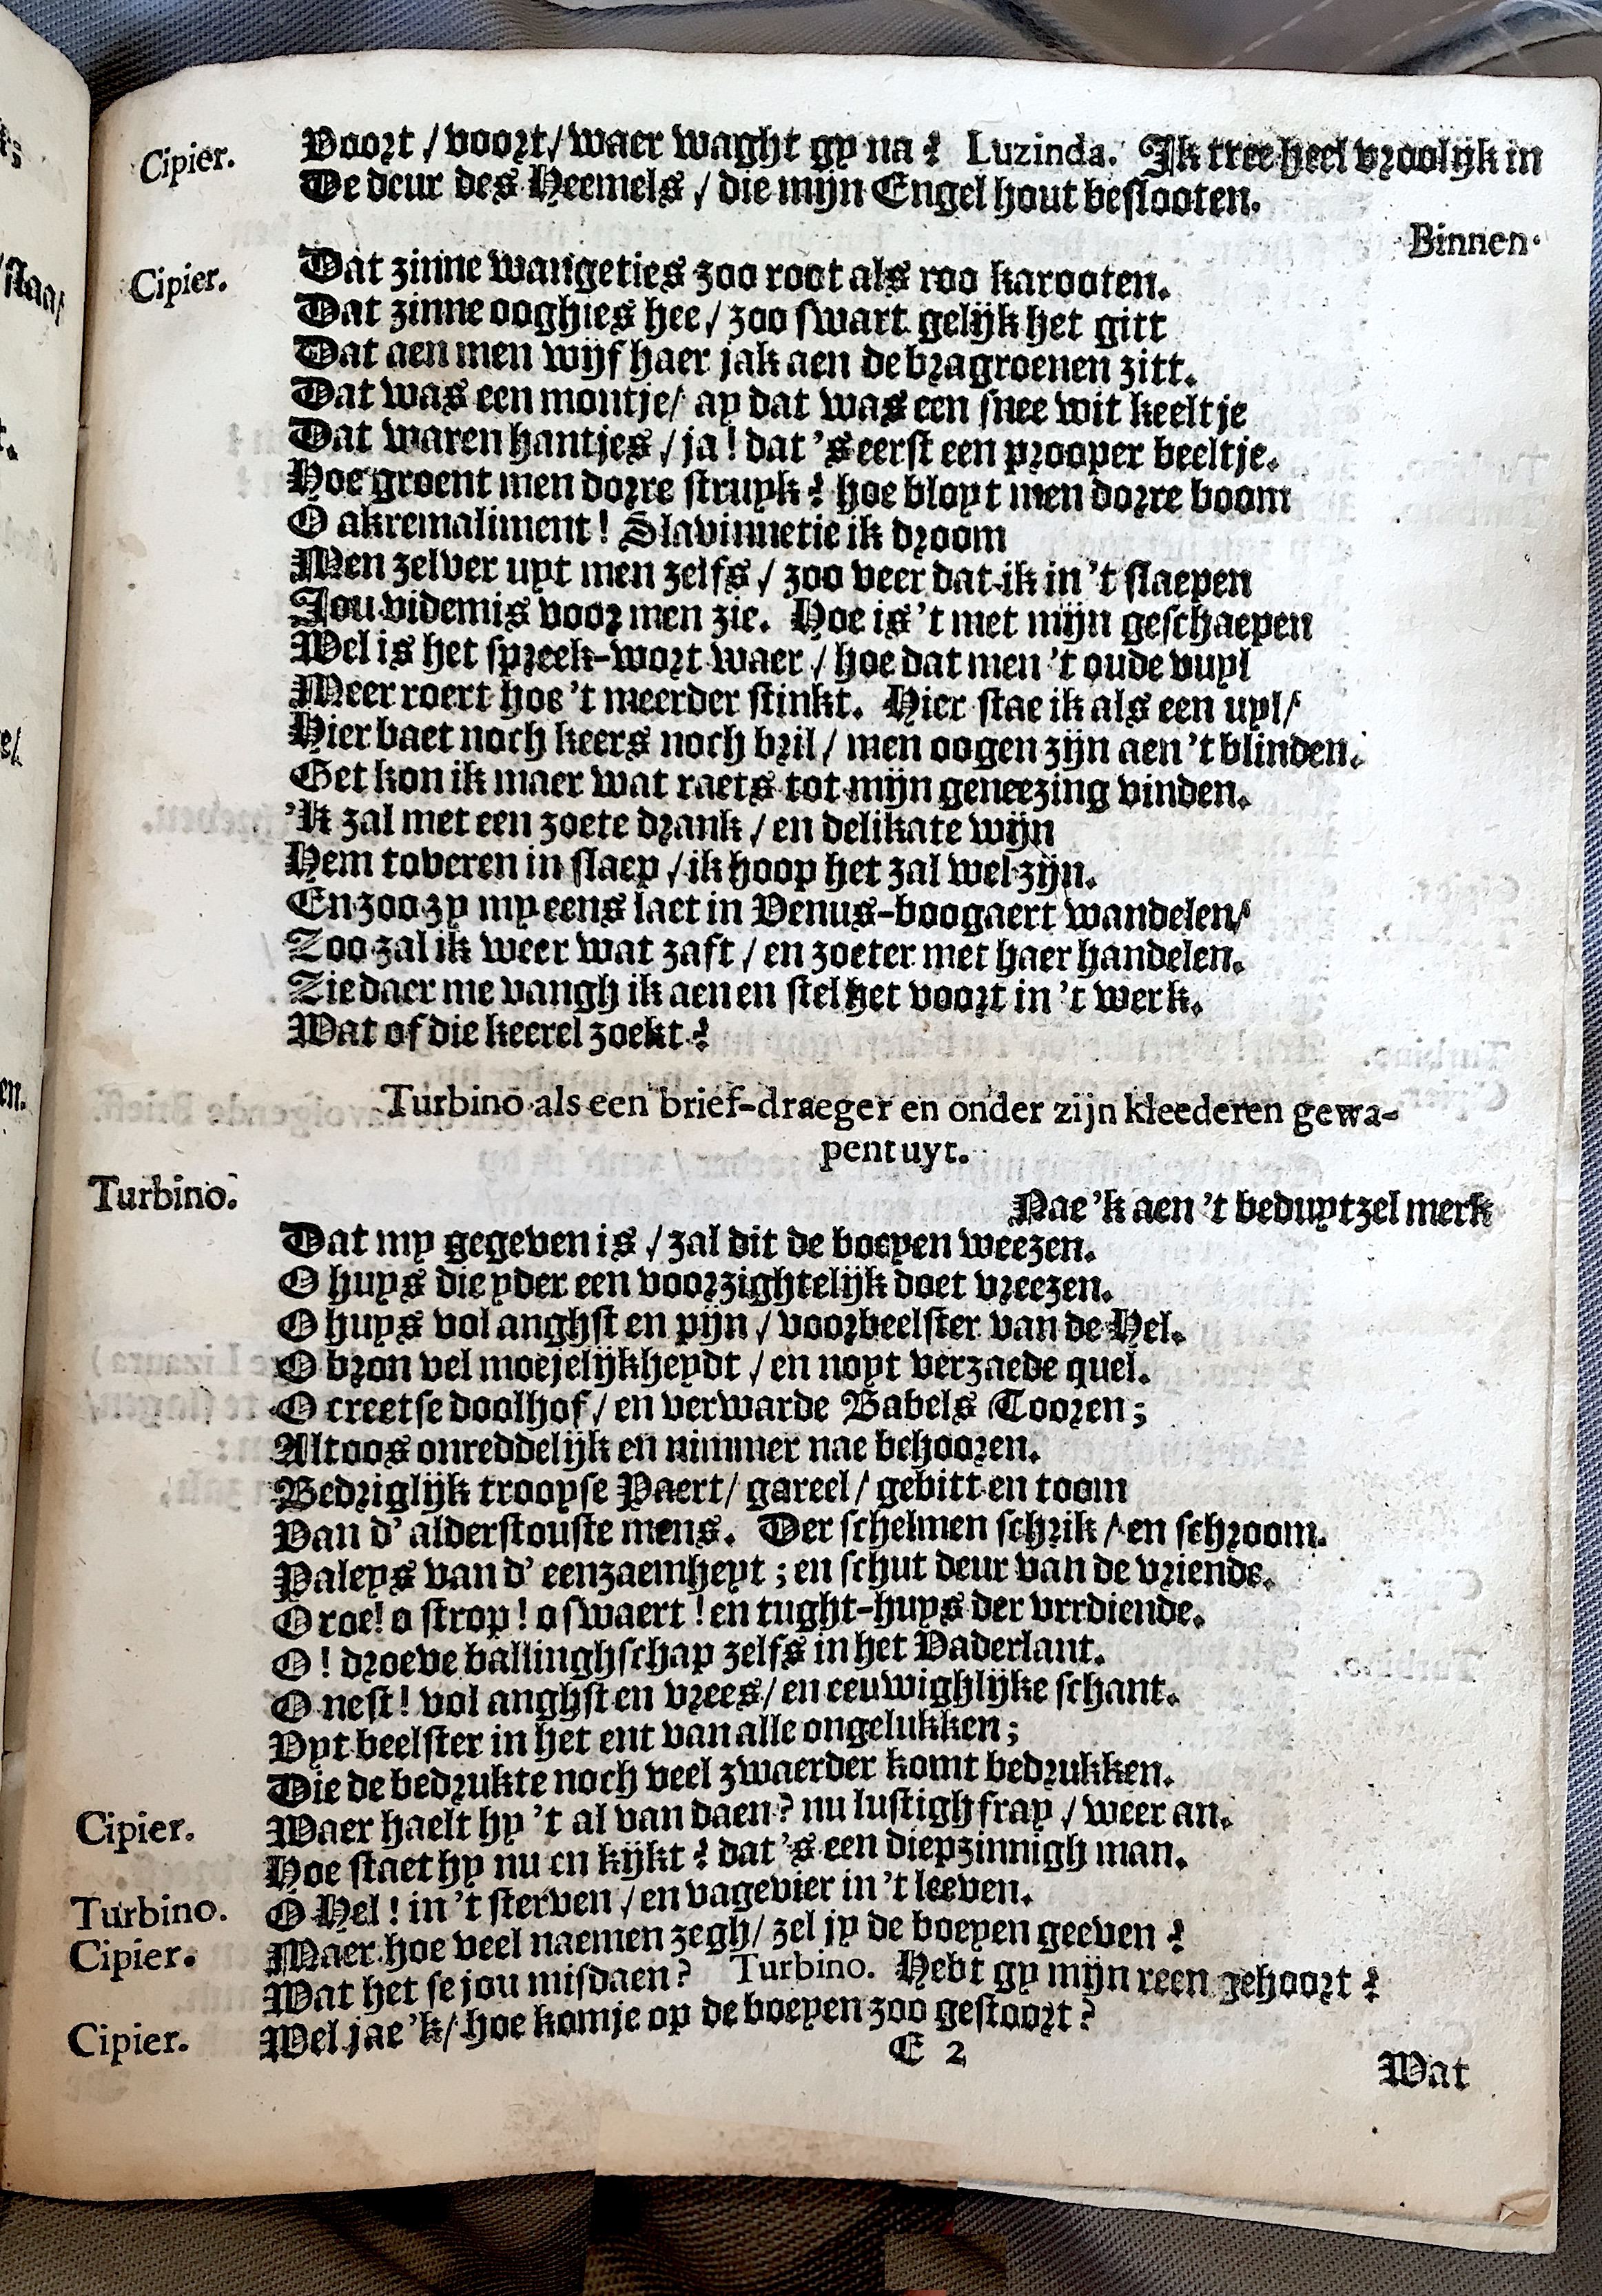 Cipier. Voort / voort / waer waght gy na? Luzinda. Ik tree heel vroolijk in
De deur des Heemels / die mijn Engel hout beslooten.
Binnen.
Cipier. Dat zinne wangeties zoo root als roo karooten.
Dat zinne ooghies hee / zoo swart gelijk het gitt
Dat aen men wijf haer jak aen de bragroenen zitt.
Dat was een montje / ay dat was een snee wit keeltje
Dat waren hantjes / ja! dat 's eerst een prooper beeltje.
Hoe groent men dorre struyk? hoe bloyt men dorre boom
O akremaliment! Slavinnetie ik droom
Men zelver uyt men zelfs / zoo veer dat ik in 't slaepen
Jou videmis voor men zie. Hoe is 't met mijn geschaepen
Wel is het spreek-wort waer / hoe dat men 't oude vuyl
Meer roert hoe 't meerder stinkt. Hier stae ik als een uyl /
Hier baet noch keers noch bril / men oogen zijn aen 't blinden.
Get kon ik maer wat raets tot mijn geneezing vinden.
'Ik zal met een zoete drank / en delikate wijn
Hem toveren in slaep / ik hoop het zal wel zijn.
En zoo zy my eens laet in Venus-boogaert wandelen /
Zoo zal ik weer wat zaft / en zoeter met haer handelen.
Zie daer me vangh ik aen en stel het voort in 't werk.
Wat of die keerel zoekt?
Turbino als een brief-draeger en onder zijn kleederen gewa-
pent uyt.
Turbino. Nae 'k aen 't beduytzel merk
Dat my gegeven is / zal dit de boeyen weezen.
O huys die yder een voorzightelijk doet vreezen.
O huys vol anghst en pijn / voorbeelster van de Hel.
O bron vel moejelijkheydt / en noyt verzaede quel.
O creetse doolhof / en verwarde Babels Tooren;
Altoos onreddelijk en nimmer nae behooren.
Bedriglijk trooyse Paert / gareel / gebitt en toom
Van d' alderstouste mens. Der schelmen schrik / en schroom.
Paleys van d' eenzaemheyt; en schut deur van de vriende.
O roe! o strop! o swaert! en tught-huys der vrrdiende.
O! droeve ballinghschap zelfs in het Vaderlant.
O nest! vol anghst en vrees / en eeuwighlijke schant.
Uyt beelster in het ent van alle ongelukken;
Die de bedrukte noch veel zwaerder komt bedrukken.
Cipier. Waer haelt hy 't al van daen? nu lustigh fray / weer an.
Hoe staet hy nu en kijkt? dat 's een diepzinnigh man.
Turbino. O Hel! in 't sterven / en vagevier in 't leeven.
Cipier. Maer hoe veel naemen zegh / zel jy de boeyen geeven?
Wat het se jou misdaen? Turbino. Hebt gy mijn reen gehoort?
Cipier. Wel jae 'k / hoe komje op de boeyen zoo gestoort?
E 2
Wat